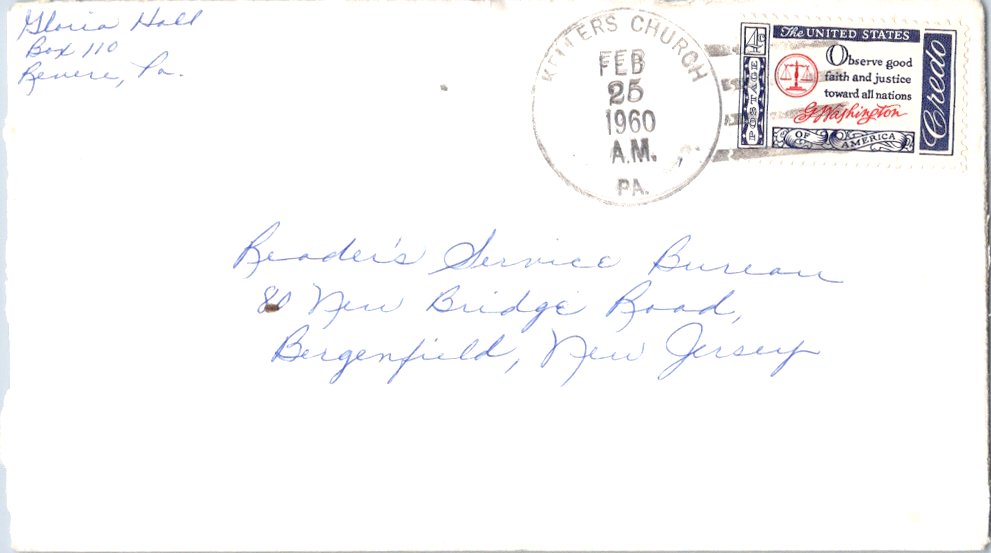 Gloria Hall
Box 110
Revere, Pa.
KELLERS CHURCH
FEB
25
1960
A.M.
PA.
4¢
POSTAGE
The UNITED STATES
Observe good
faith and justice
toward all nations
G Washington
OF AMERICA
Credo
Reader's Service Bureau
80 New Bridge Road,
Bergenfield, New Jersey